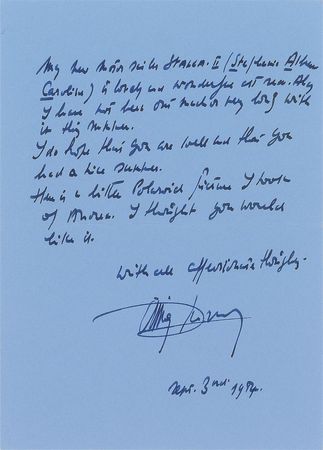 My new motor sailer STALCA. II (Stephanie Albert
Caroline) is lovely and wonderful at sea. Alas
I have not been out much or very long with
it this summer.
I do hope that you are well and that you
had a nice summer.
Here is a little Polaroid picture I took
of Andrea. I thought you would
like it.
with all affectionate thoughts.
Sept. 3rd 1984.